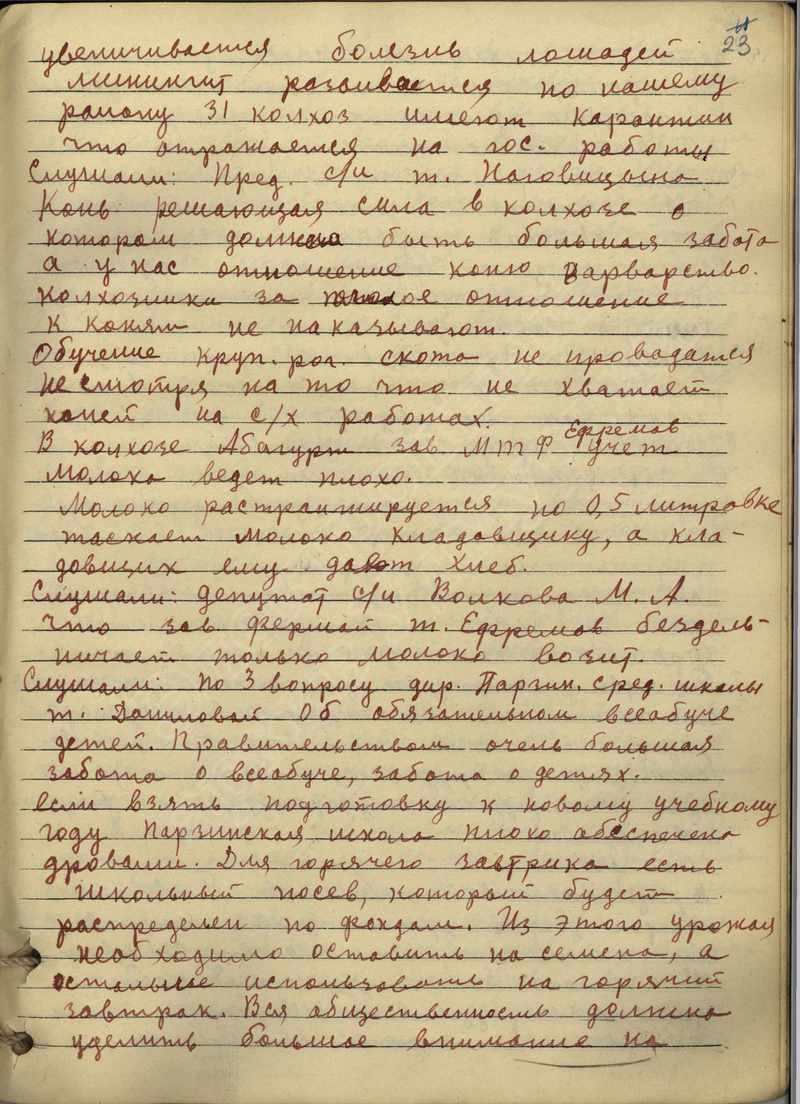 23
увеличивается болезнь лошадей
минингит развивается по нашему
району 31 колхоз имеют карантин
что отражается на гос. работы
Слушали: Пред. с/и т. Наговицына
Конь решающая сила в колхозе о
котором должна быть большая забота
а у нас отношение коню варварство.
колхозники за плохое отношение
к коням не наказывают.
Обучение круп. рог. скота не проводатся
не смотря на то что не хватает
коней на с/х работах.
Ефремов
В колхозе Абагурт зав МТФ учет
молока ведет плохо.
Молоко растранжируется по 0,5 литровке
таскает молоко кладовщику, а кла-
довщик ему дают хлеб.
Слушали: депутат с/и Волкова М. А.
что зав фермой т. Ефремов бездель-
ничает только молоко возит.
Слушали: по 3 вопросу дир. Парзин. сред. школы
т. Даниловой Об обязательном всеабуче
детей. Правительством очень большая
забота о всеабуче, забота о детях.
если взять подготовку к новому учебному
году Парзинская школа плохо обеспечена
дровами. Для горячего завтрика есть
школьный посев, который будет
распределен по фондам. Из этого урожая
необходимо оставить на семена, а
остальное использовать на горячий
завтрак. Вся общественность должна
уделить большое внимание на